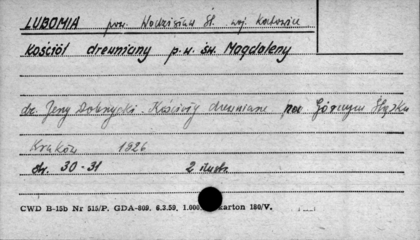 LUBOMIA pow. Wodzisław Śl. woj. Katowice
Kościół drewniany p.w. św. Magdaleny
dr. Jerzy Dobrzycki Kościoły drewniane na Górnym Śląsku
Kraków 1926
str. 30-31 2 ilustr.
CWD B-15b Nr 515/P. GDA-809. 6.3.59. 1.000 karton 180/V.